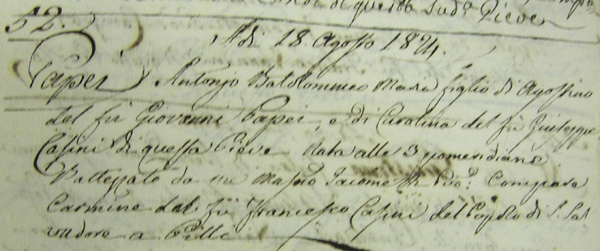 di questa Sud.a Pieve
52.
A dì 18. Agosto 1874.
Papei Antonio Bartolommeo Maria figlio di Agostino
del fu Giovanni Papei, e di Carolina del fu Giuseppe
Casini di questa Pieve nata alle 3 pomeridiane
Battezzato da me Compare
Carmine del fu Francesco Casini del Popolo di S. Sal
vadore a